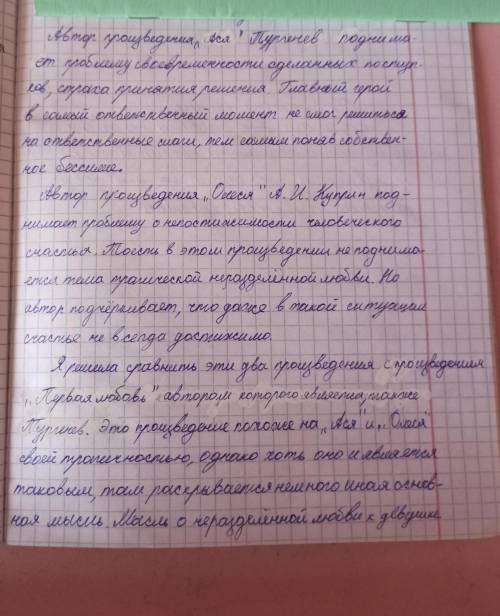 Автор произведения „Ася" Тургенев поднима-
ет проблему своевременности сделанных поступ-
ков, страха принятия решения. Главный герой
в самый ответственный момент не смог решиться
на ответственные шаги, тем самым поняв собствен-
ное бессилие.
Автор произведения „Олеся" А. И. Куприн под-
нимает проблему о непостижимости человеческого
счастья. То есть в этом произведении не поднима-
ется тема трагической неразделённой любви. Но
автор подчёркивает, что даже в такой ситуации
счастье не всегда достижимо.
Я решила сравнить эти два произведения с произведением
„Первая любовь" автором которого является также
Тургенев. Это произведение похоже на „Ася" и „Олеся"
своей трагичностью, однако хоть оно и является
таковым, там раскрывается немного иная основ-
ная мысль. Мысль о неразделённой любви к девушке